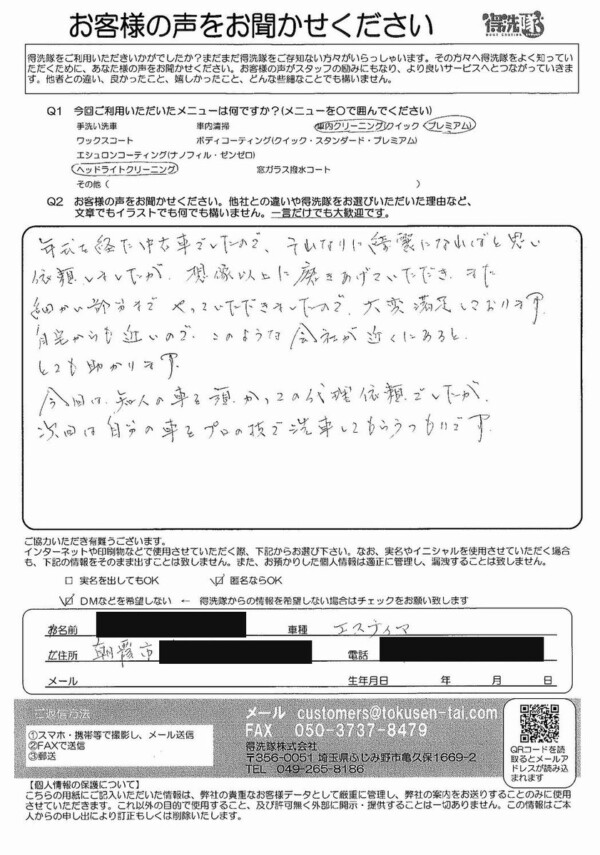 お客様の声をお聞かせください
得洗隊
得洗隊をご利用いただきいかがでしたか?まだまだ得洗隊をご存知ない方々がいらっしゃいます。その方々へ得洗隊をよく知っていただくために、あなた様の声をお聞かせください。お客様の声がスタッフの励みにもなり、より良いサービスへとつながっていきます。他者との違い、良かったこと、嬉しかったこと、どんな些細なことでも構いません。
Q1 今回ご利用いただいたメニューは何ですか?(メニューを○で囲んでください)
手洗い洗車 車内清掃 車内クリーニング(クイック・プレミアム)
ワックスコート ボディコーティング(クイック・スタンダード・プレミアム)
エシュロンコーティング(ナノフィル・ゼンゼロ)
ヘッドライトクリーニング 窓ガラス撥水コート
その他(
Q2 お客様の声をお聞かせください。他社との違いや得洗隊をお選びいただいた理由など、
文章でもイラストでも何でも構いません。一言だけでも大歓迎です。
年式を経た中古車でしたので、それなりに綺麗になればと思い
依頼しましたが、想像以上に磨きあげていただき、また
細かい部分まで やっていただきましたので、大変満足しております。
自宅からも近いので、このような会社が近くにあると、
とても助かります。
今回は、知人の車を預かっての代理依頼でしたが、
次回は自分の車をプロの技で洗車してもらうつもりです。
ご協力いただき有難うございます。
インターネットや印刷物などで使用させていただく際、下記からお選び下さい。なお、実名やイニシャルを使用させていただく場合
も、下記の情報をそのまま出すことは致しません。また、お預かりした個人情報は適正に管理し、漏洩することは致しません。
□ 実名を出してもOK ☑ 匿名ならOK
☑ DMなどを希望しない ← 得洗隊からの情報を希望しない場合はチェックをお願い致します
お名前 車種 エスティマ
ご住所 朝霞市 電話
メール 生年月日 年 月 日
ご返信方法
①スマホ・携帯等で撮影し、メール送信
②FAXで送信
③郵送
メール customers@tokusen-tai.com
FAX 050-3737-8479
得洗隊株式会社
〒356-0051 埼玉県ふじみ野市亀久保1669-2
TEL 049-265-8186
QRコードを読
取るとメールア
ドレスが読み込
まれます
【個人情報の保護について】
こちらの用紙にご記入いただいた情報は、弊社の貴重なお客様データとして厳重に管理し、弊社の案内をお送りすることのみに使用
させていただきます。これ以外の目的で使用すること、及び許可無く外部に開示・提供することは一切ありません。この情報はご本
人からの申し出により訂正もしくは削除いたします。